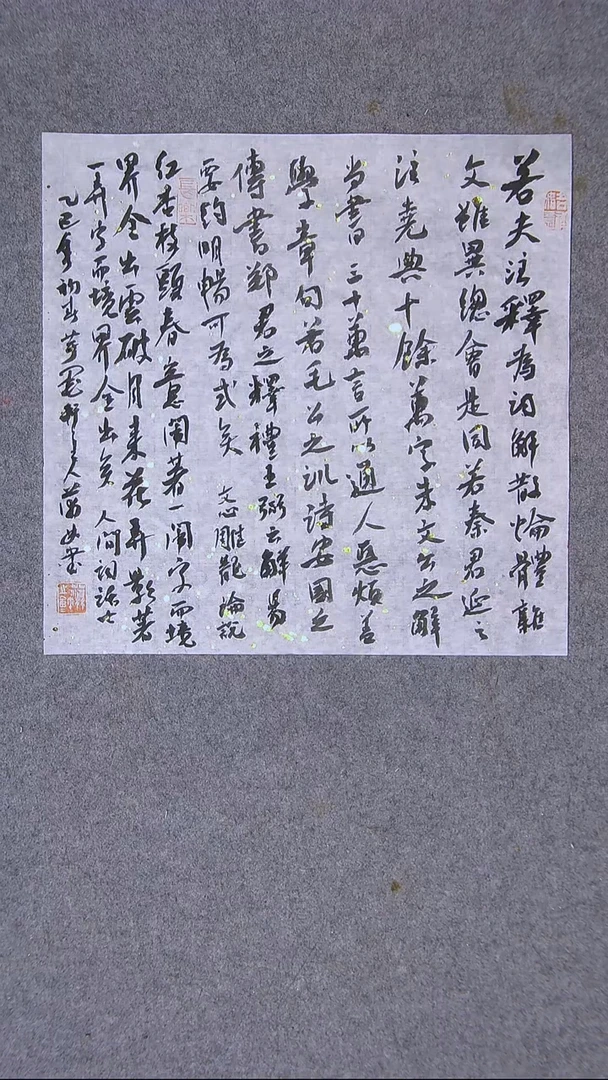 若夫注釋為詞解散論體離
文雖異總會是同若秦君延之
注堯典十餘萬字朱文公之解
尚書三十萬言所以通人惡煩羞
學章句若毛公之訓詩安國之
傳書鄭君之釋禮王弼之解易
要約明暢可為式矣 文心雕龍論說
紅杏枝頭春意鬧著一鬧字而境
界全出雲破月來花弄影著
一弄字而境界全出矣 人间词话七
乙巳年初春